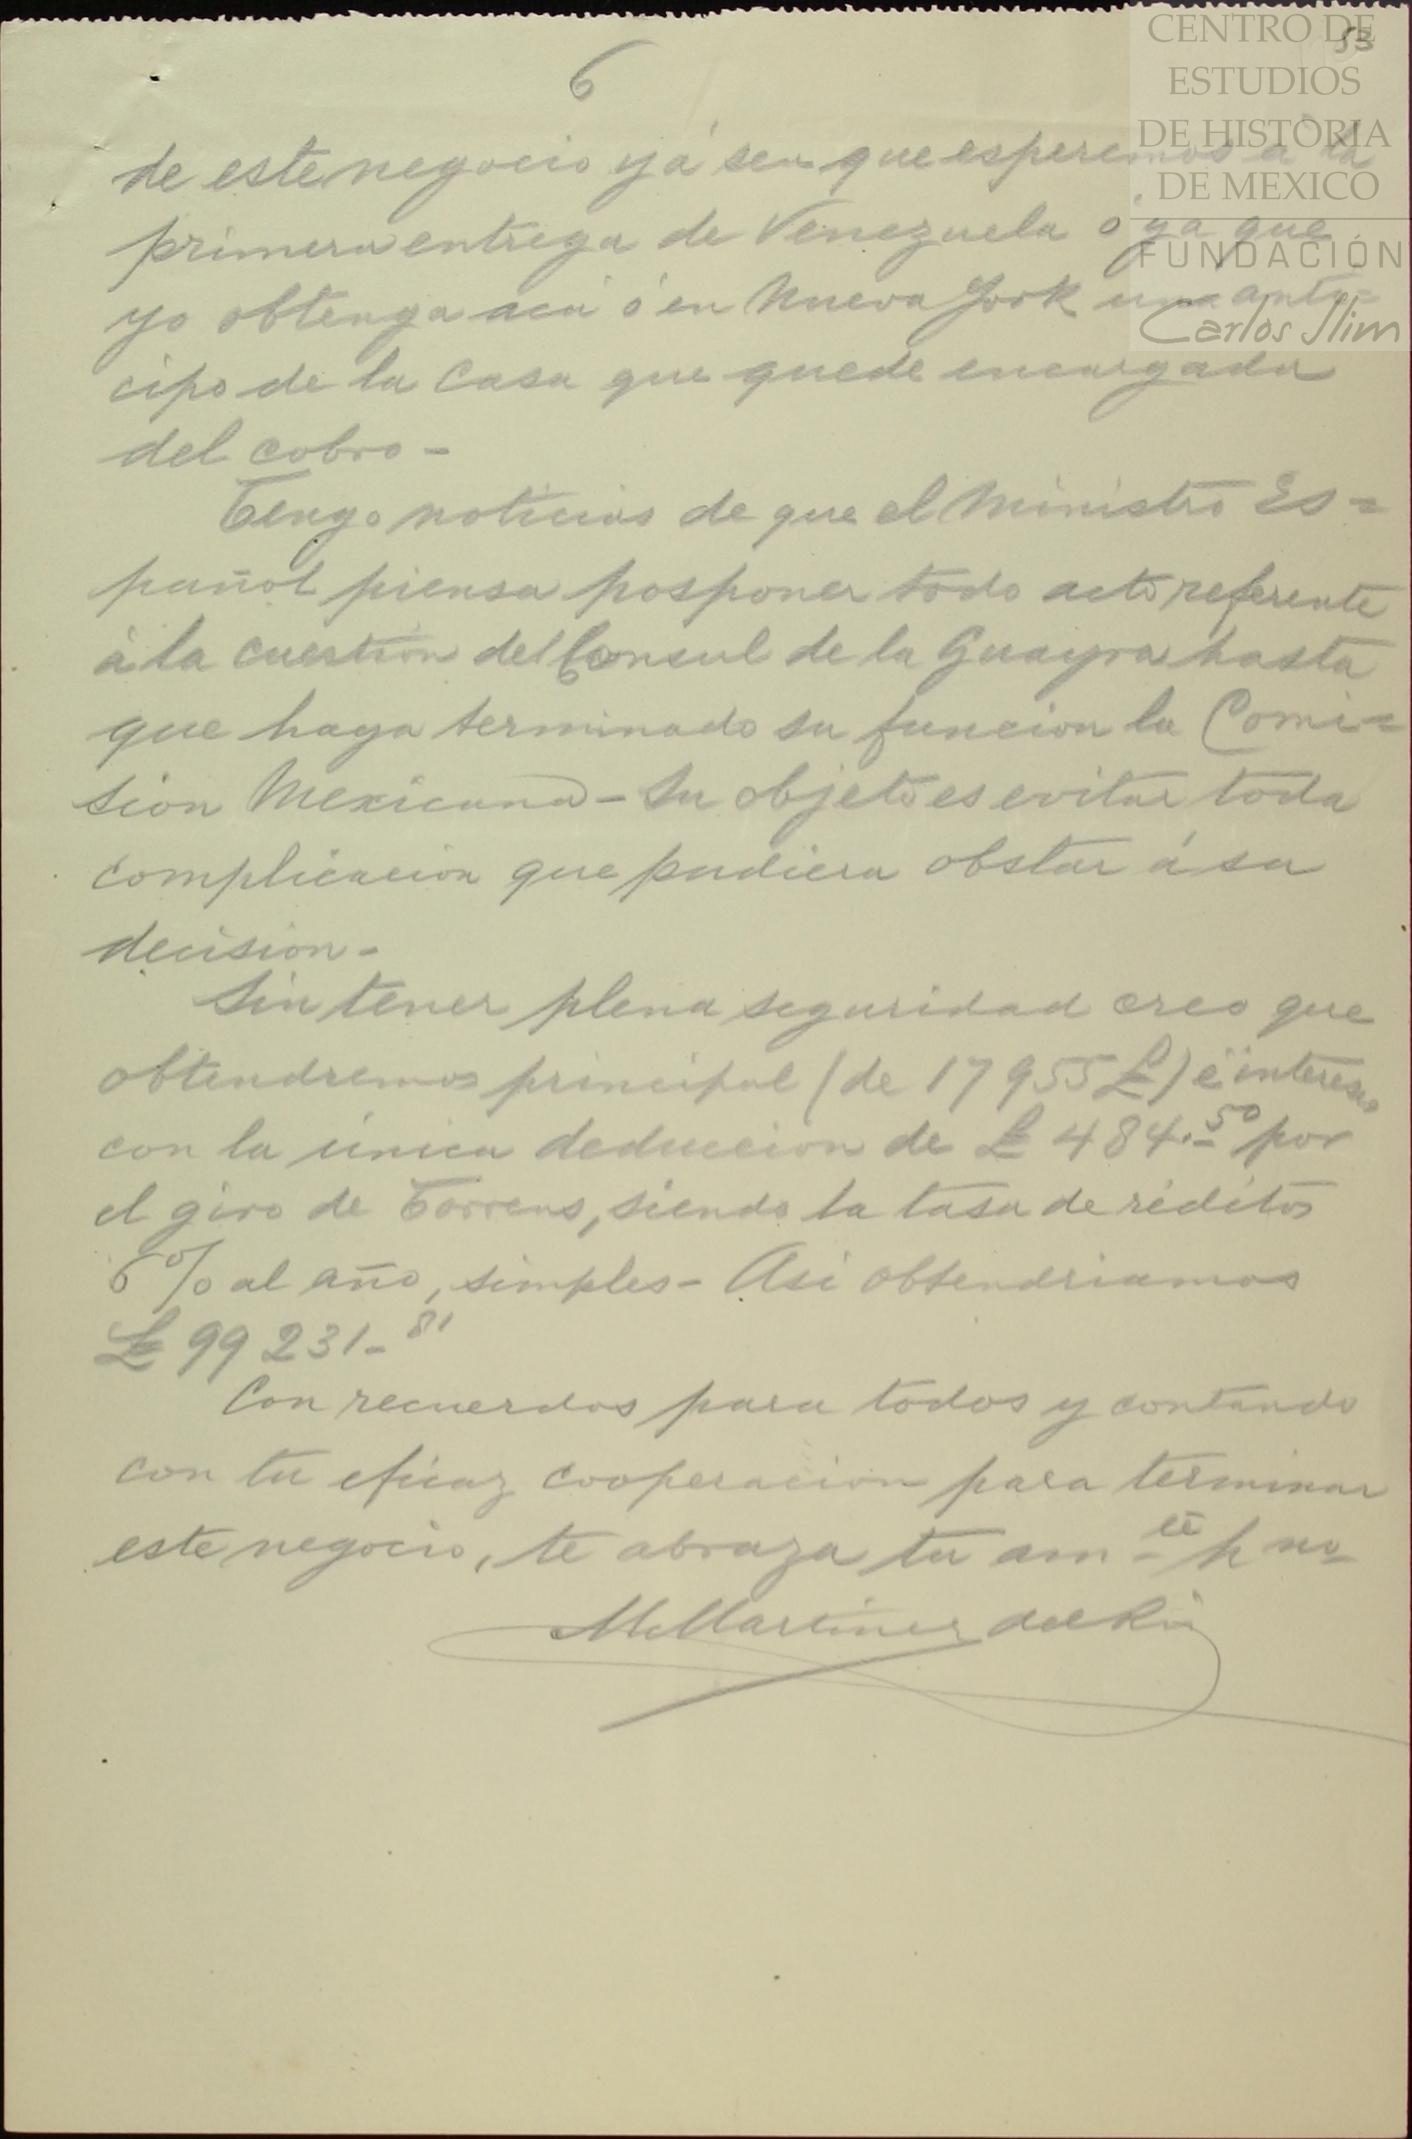 CENTRO DE
ESTUDIOS
DE HISTORIA
DE MEXICO
FUNDACIÓN
Carlos Slim
53
6
de este negocio yá sea que esperemos a la
primera entrega de Venezuela o ya que
yo obtenga acá ó en Nueva York un anti=
cipo de la Casa que quede encargada
del cobro -
Tengo noticias de que el Ministro Es=
pañol piensa posponer todo acto referente
á la cuestion del Consul de la Guayra hasta
que haya terminado su funcion la Comi=
sion Mexicana - Su objeto es evitar toda
complicacion que pudiera obstar á su
decision -
Sin tener plena seguridad creo que
obtendremos principal (de 17 955 £) é intereses
con la única deduccion de £ 484.50 por
el giro de Torrens, siendo la tasa de réditos
6 % al año, simples - Asi obtendriamos
£ 99 231-81
Con recuerdos para todos y contando
con tu eficaz cooperacion para terminar
este negocio, te abraza tu am-te hno
M Martinez del Rio